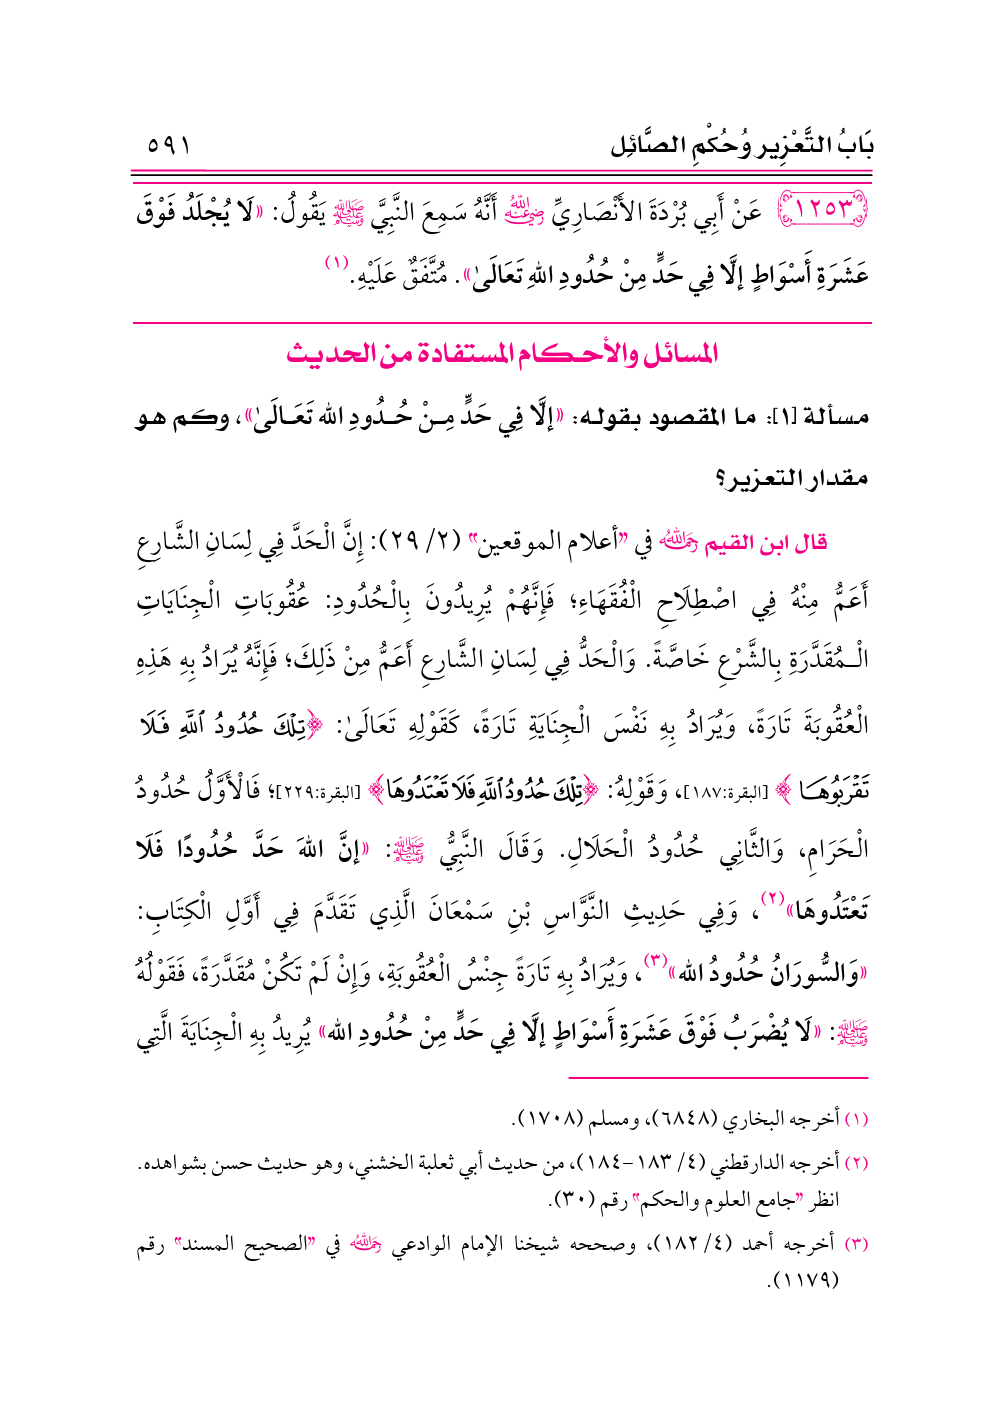 بَابُ التَّعْزِيرِ وَحُكْمِ الصَّائِلِ ٥٩١
﴿١٢٥٣﴾ عَنْ أَبِي بُرْدَةَ الأَنْصَارِيِّ رضي الله عنه أَنَّهُ سَمِعَ النَّبِيَّ ﷺ يَقُولُ: «لَا يُجْلَدُ فَوْقَ
عَشَرَةِ أَسْوَاطٍ إلَّا فِي حَدٍّ مِنْ حُدُودِ اللهِ تَعَالَىٰ». مُتَّفَقٌ عَلَيْهِ.(١)
المسائل والأحكام المستفادة من الحديث
مسألة [١]: ما المقصود بقوله: «إلَّا فِي حَدٍّ مِنْ حُدُودِ الله تَعَالَىٰ»، وكم هو
مقدار التعزير؟
قال ابن القيم رحمه الله في "أعلام الموقعين" (٢/ ٢٩): إِنَّ الْحَدَّ فِي لِسَانِ الشَّارِعِ
أَعَمُّ مِنْهُ فِي اصْطِلَاحِ الْفُقَهَاءِ؛ فَإِنَّهُمْ يُرِيدُونَ بِالْحُدُودِ: عُقُوبَاتِ الْجِنَايَاتِ
الْـمُقَدَّرَةِ بِالشَّرْعِ خَاصَّةً. وَالْحَدُّ فِي لِسَانِ الشَّارِعِ أَعَمُّ مِنْ ذَلِكَ؛ فَإِنَّهُ يُرَادُ بِهِ هَذِهِ
الْعُقُوبَةَ تَارَةً، وَيُرَادُ بِهِ نَفْسَ الْجِنَايَةِ تَارَةً، كَقَوْلِهِ تَعَالَىٰ: ﴿تِلْكَ حُدُودُ ٱللَّهِ فَلَا
تَقْرَبُوهَا﴾ [البقرة:١٨٧]، وَقَوْلِهُ: ﴿تِلْكَ حُدُودُ ٱللَّهِ فَلَا تَعْتَدُوهَا﴾ [البقرة:٢٢٩]؛ فَالْأَوَّلُ حُدُودُ
الْحَرَامِ، وَالثَّانِي حُدُودُ الْحَلَالِ. وَقَالَ النَّبِيُّ ﷺ: «إنَّ اللهَ حَدَّ حُدُودًا فَلَا
تَعْتَدُوهَا»(٢)، وَفِي حَدِيثِ النَّوَّاسِ بْنِ سَمْعَانَ الَّذِي تَقَدَّمَ فِي أَوَّلِ الْكِتَابِ:
«وَالسُّورَانُ حُدُودُ الله»(٣)، وَيُرَادُ بِهِ تَارَةً جِنْسُ الْعُقُوبَةِ، وَإِنْ لَمْ تَكُنْ مُقَدَّرَةً، فَقَوْلُهُ
ﷺ: «لَا يُضْرَبُ فَوْقَ عَشَرَةِ أَسْوَاطٍ إلَّا فِي حَدٍّ مِنْ حُدُودِ الله» يُرِيدُ بِهِ الْجِنَايَةَ الَّتِي
(١) أخرجه البخاري (٦٨٤٨)، ومسلم (١٧٠٨).
(٢) أخرجه الدارقطني (٤/ ١٨٣-١٨٤)، من حديث أبي ثعلبة الخشني، وهو حديث حسن بشواهده.
انظر "جامع العلوم والحكم" رقم (٣٠).
(٣) أخرجه أحمد (٤/ ١٨٢)، وصححه شيخنا الإمام الوادعي رحمه الله في "الصحيح المسند" رقم
(١١٧٩).